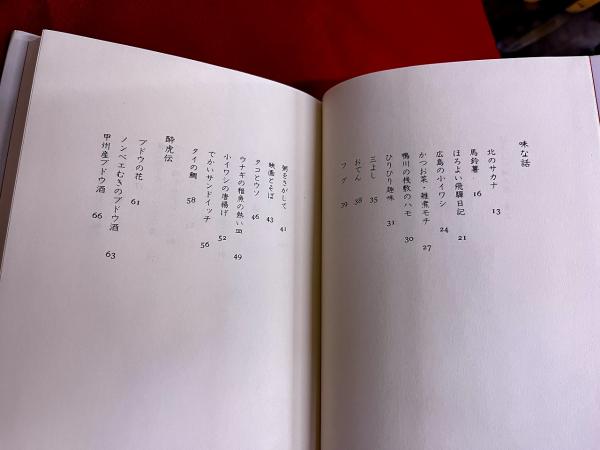 味な話
北のサカナ 13
馬鈴薯 16
ほろよい飛騨日記 21
広島の小イワシ 24
かつお菜・雑煮モチ 27
鴨川の桟敷のハモ 30
ひりひり趣味 31
三よし 35
おでん 38
フグ 39
粥をさがして 41
映画とそば 43
タコとウソ 46
ウナギの稚魚の熱い皿 49
小イワシの唐揚げ 52
でかいサンドイッチ 56
タイの鯛 58
酔虎伝
ブドウの花 61
ノンベエむきのブドウ酒 63
甲州産ブドウ酒 66